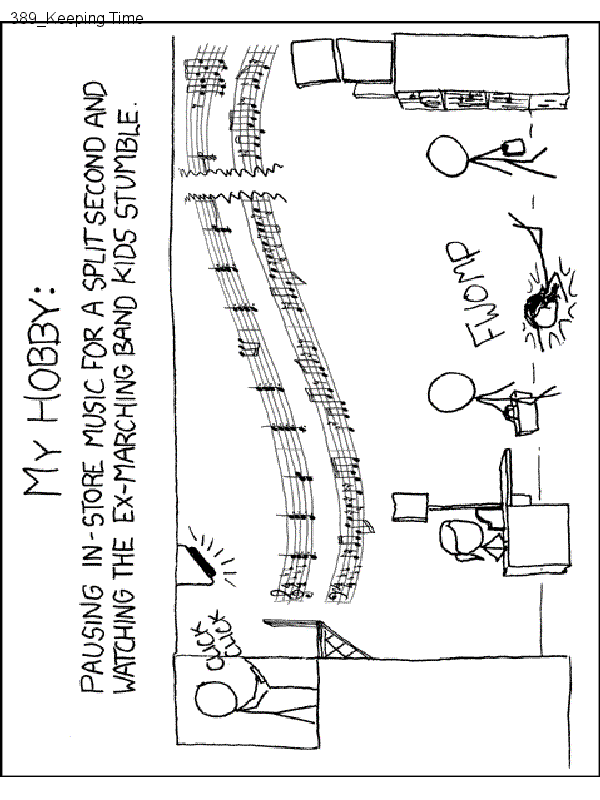 389_Keeping Time
MY HOBBY:
PAUSING IN-STORE MUSIC FOR A SPLIT SECOND AND
WATCHING THE EX-MARCHING BAND KIDS STUMBLE.
CLICK
CLICK
FWOMP